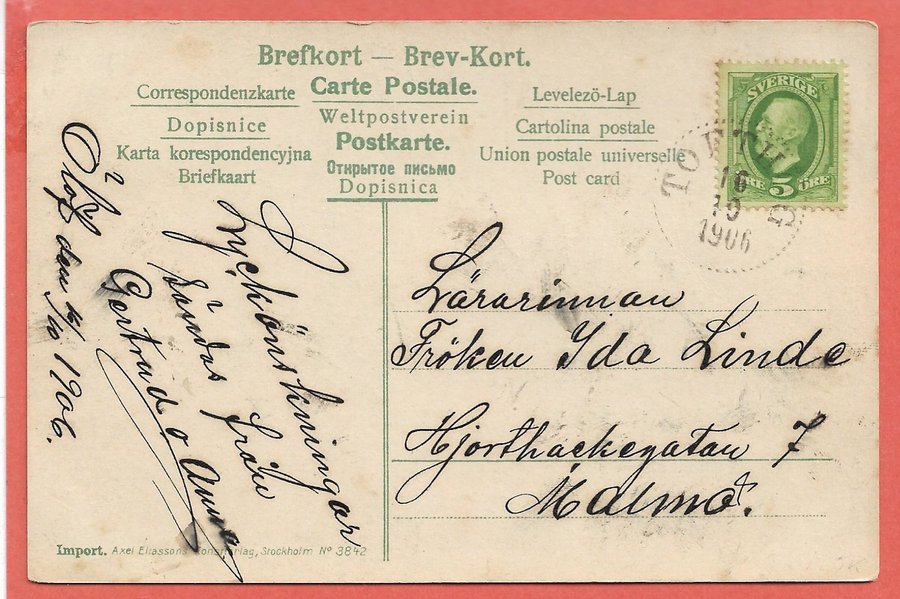 Brefkort — Brev-Kort.
Correspondenzkarte
Carte Postale.
Levelezö-Lap
Dopisnice
Weltpostverein
Cartolina postale
Karta korespondencyjna
Postkarte.
Union postale universelle
Briefkaart
Открытое письмо
Post card
Dopisnica
SVERIGE
5 ÖRE
16
10
1906
den 16/10 1906.
Lyckönskningar
sändas från
Gertrud o. Anna
Lärarinnan
Fröken Ida Linde
Hjorthackegatan 7
Malmö.
Import. Axel Eliassons Konstförlag, Stockholm Nº 3842